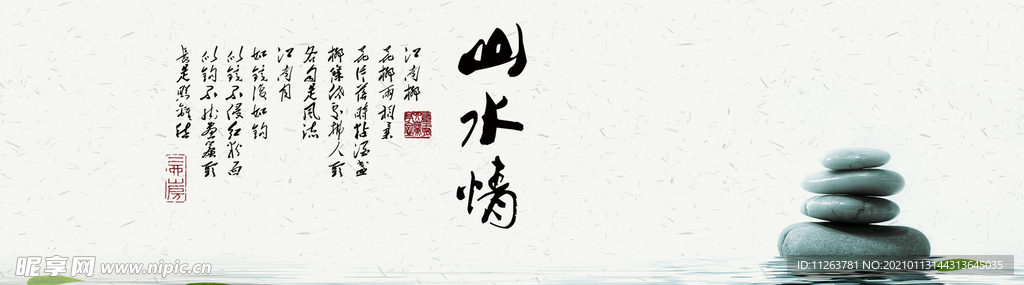 山水情
江南柳
花柳兩相柔
花片落時粘酒盞
柳條低處拂人頭
各自是風流
江南月
如鏡復如鉤
似鏡不侵紅粉面
似鉤不掛畫簾頭
長是照離愁
昵享网 www.nipic.cn
ID:11263781 NO:20210113144313645035